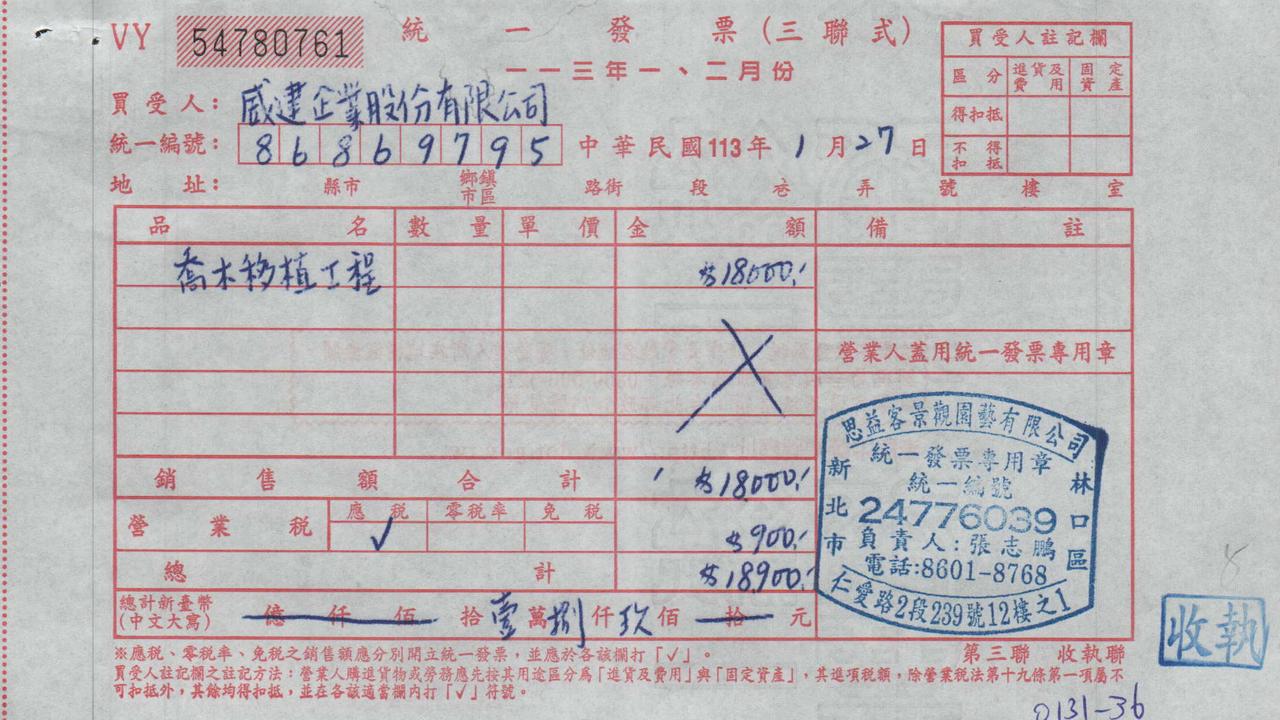 VY 54780761 統一發票(三聯式)
一一三年一、二月份
買受人註記欄
區分 進貨及費用 固定資產
得扣抵
不得扣抵
買受人: 威建企業股份有限公司
統一編號: 86869795 中華民國113年1月27日
地址: 縣市 鄉鎮市區 路街 段 巷 弄 號 樓 室
品名 數量 單價 金額 備註
喬木移植工程 $18000.-
營業人蓋用統一發票專用章
銷售額合計 $18000.-
營業稅 應稅 零稅率 免稅
✓ $900.-
總計 $18900.-
總計新臺幣(中文大寫) 億 仟 佰 拾 壹 萬 捌 仟 玖 佰 拾 元
思益客景觀園藝有限公司
統一發票專用章
統一編號
24776039
負責人:張志鵬
電話:8601-8768
新北市 林口區
仁愛路2段239號12樓之1
※應稅、零稅率、免稅之銷售額應分別開立統一發票,並應於各該欄打「✓」。
第三聯 收執聯
買受人註記欄之註記方法:營業人購進貨物或勞務應先按其用途區分為「進貨及費用」與「固定資產」,其進項稅額,除營業稅法第十九條第一項屬不
可扣抵外,其餘均得扣抵,並在各該適當欄內打「✓」符號。
收執
0131-36